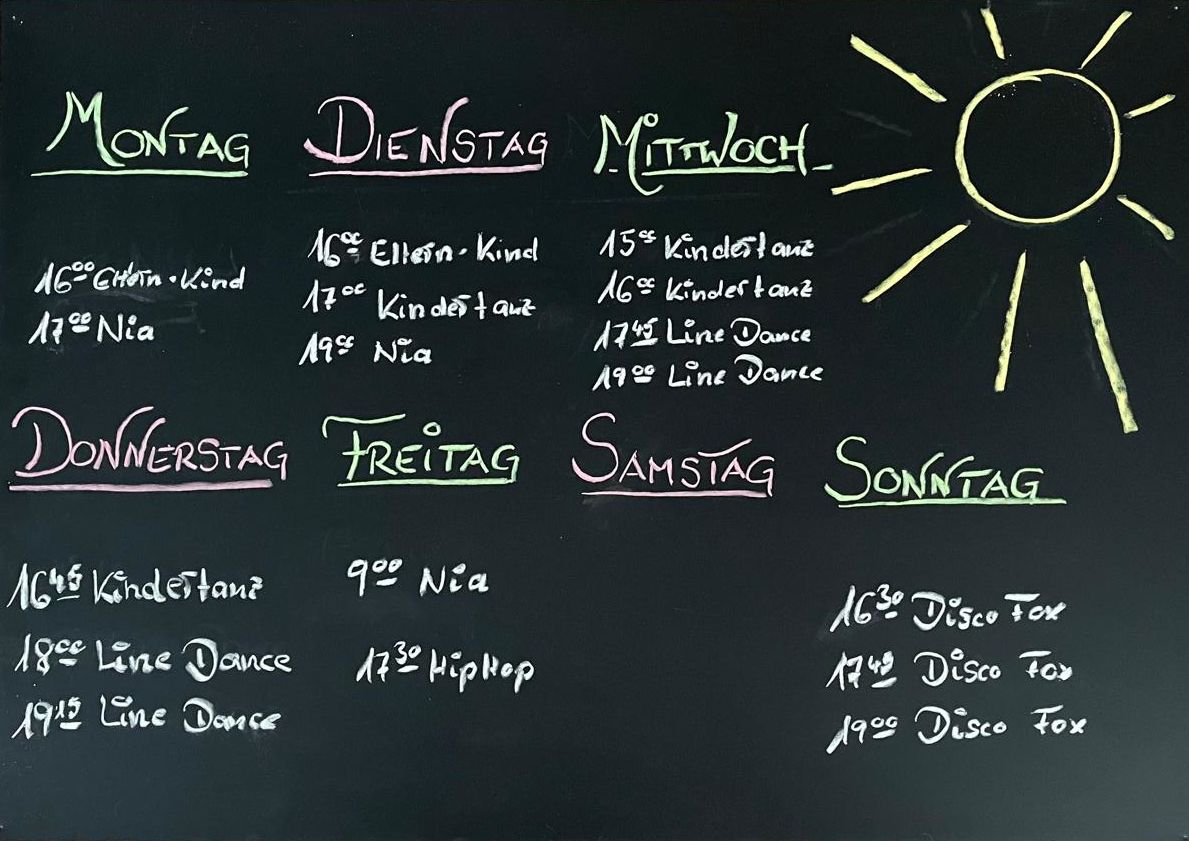 MONTAG
16⁰⁰ Eltern-Kind
17⁰⁰ Nia
DIENSTAG
16⁰⁰ Eltern-Kind
17⁰⁰ Kindertanz
19⁰⁰ Nia
MITTWOCH
15⁰⁰ Kindertanz
16⁰⁰ Kindertanz
17⁴⁵ Line Dance
19⁰⁰ Line Dance
DONNERSTAG
16⁴⁵ Kindertanz
18⁰⁰ Line Dance
19¹⁵ Line Dance
FREITAG
9⁰⁰ Nia
17³⁰ HipHop
SAMSTAG
SONNTAG
16³⁰ Disco Fox
17⁴⁵ Disco Fox
19⁰⁰ Disco Fox